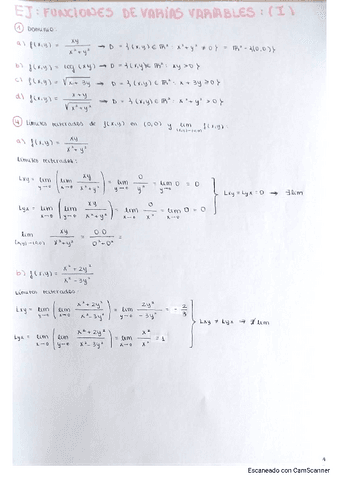 EJ: FUNCIONES DE VARIAS VARIABLES: (I)
1) DOMINIO:
a) f(x,y) = xy / x²+y² → D = {(x,y) ∈ ℝ² : x²+y² ≠ 0} = ℝ² - {(0,0)}
b) f(x,y) = log (xy) → D = {(x,y) ∈ ℝ² : xy > 0}
c) f(x,y) = √x + 3y → D = {(x,y) ∈ ℝ² : x + 3y ≥ 0}
d) f(x,y) = x+y / √x²+y² → D = {(x,y) ∈ ℝ² : x²+y² > 0}
Límites reiterados de f(x,y) en (0,0) y lim f(x,y)
a) f(x,y) = xy / x²+y²
Límites reiterados:
Lxy = lim y→0 ( lim x→0 xy / x²+y² ) = lim y→0 0 / y² = lim y→0 0 = 0
Lyx = lim x→0 ( lim y→0 xy / x²+y² ) = lim x→0 0 / x² = lim x→0 0 = 0
Lxy = Lyx = 0 →
lim (x,y)→(0,0) xy / x²+y² = 0·0 / 0²+0² =
b) f(x,y) = x²+2y² / x²-3y²
Límites reiterados:
Lxy = lim y→0 ( lim x→0 x²+2y² / x²-3y² ) = lim y→0 2y² / -3y² = - 2/3
Lyx = lim x→0 ( lim y→0 x²+2y² / x²-3y² ) = lim x→0 x² / x² = 1
Lxy ≠ Lyx → ∄ lim
Escaneado con CamScanner